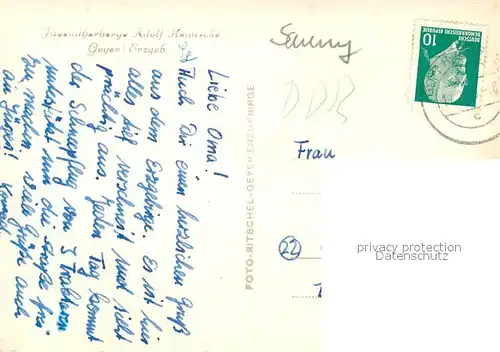 Jugendherberge Adolf Hennecke
Geyer/Erzgeb.
Liebe Oma!
Auch Dir einen herzlichen Gruß
aus dem Erzgebirge. Es ist hier
alles tief verschneit und sieht
prächtig aus. Jeden Tag kommt
der Schneepflug von 3 Traktoren
und die Straße frei
zu machen. Viele Grüße auch
an
FOTO-RITSCHEL-GEYER-ERZGEBIRGE
DDR
DEUTSCHE
DEMOKRATISCHE REPUBLIK
10
Frau
22
privacy protection
Datenschutz
AnsichtskartenCenter